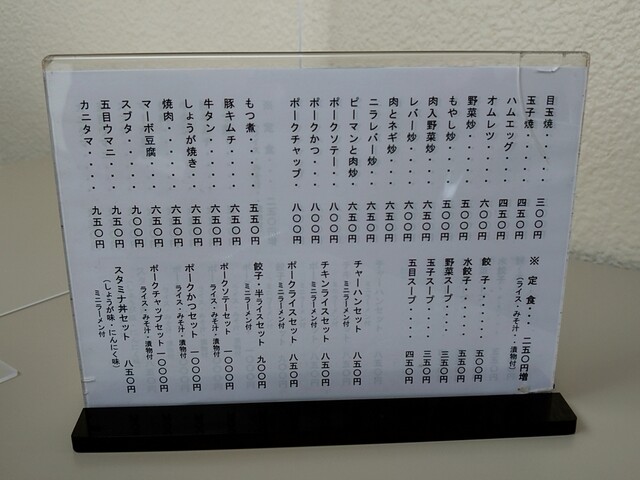 目玉焼・・・・・三〇〇円
玉子焼・・・・・四五〇円
ハムエッグ・・・四五〇円
オムレツ・・・・六〇〇円
野菜炒・・・・・五〇〇円
もやし炒・・・・五〇〇円
肉入野菜炒・・・六〇〇円
レバー炒・・・・六五〇円
肉とネギ炒・・・六五〇円
ニラレバー炒・・六五〇円
ピーマンと肉炒・六五〇円
ポークソテー・・八〇〇円
ポークかつ・・・八〇〇円
ポークチャップ・八〇〇円
もつ煮・・・・・五五〇円
豚キムチ・・・・六五〇円
牛タン・・・・・六五〇円
しょうが焼き・・六五〇円
焼肉・・・・・・六五〇円
マーボ豆腐・・・六五〇円
スブタ・・・・・九〇〇円
五目ウマニ・・・九五〇円
カニタマ・・・・九五〇円
※定食・・・二五〇円増
(ライス・みそ汁・漬物付)
餃子・・・・・五〇〇円
水餃子・・・・五五〇円
野菜スープ・・・三五〇円
玉子スープ・・・三五〇円
五目スープ・・・四五〇円
チャーハンセット 八五〇円
ミニラーメン付
チキンライスセット 八五〇円
ミニラーメン付
ポークライスセット 八五〇円
ミニラーメン付
餃子・半ライスセット 九〇〇円
ミニラーメン付
ポークソテーセット 一〇〇〇円
ライス・みそ汁・漬物付
ポークかつセット 一〇〇〇円
ライス・みそ汁・漬物付
ポークチャップセット 一〇〇〇円
ライス・みそ汁・漬物付
スタミナ丼セット 八五〇円
(しょうが味・にんにく味)
ミニラーメン付